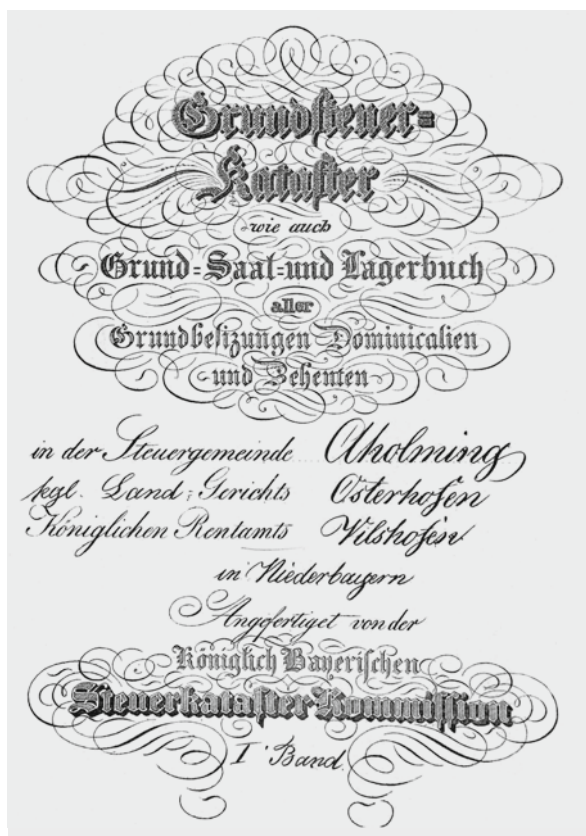 Grundsteuer=
Kataster
wie auch
Grund=Saal=und Lagerbuch
aller
Grundbesizungen Dominicalien
und Zehenten
in der Steuergemeinde Aholming
kgl. Land=Gerichts Osterhofen
Königlichen Rentamts Vilshofen
in Niederbayern
Angefertiget von der
Königlich Bayerischen
Steuerkataster Kommission
I. Band.